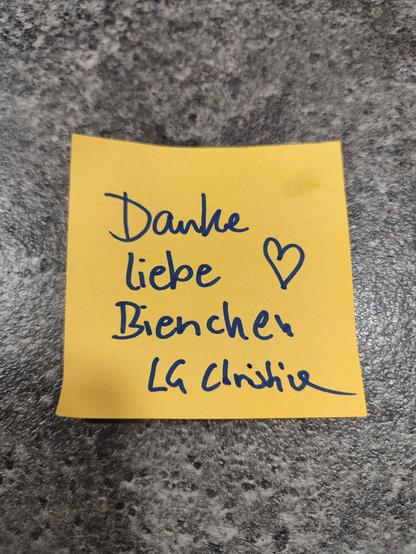 Danke
liebe ♡
Bienchen
LG Christine